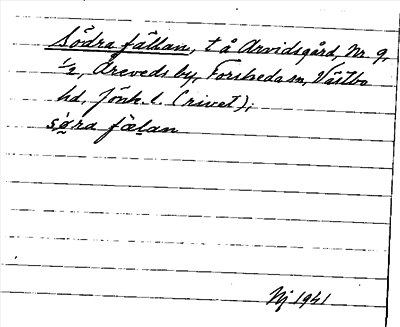 Södra fållan, t å Arvidsgård, Nr 9,
1/2, Åreveds by, Forsheda sn, Västbo
hd, Jönk. l. (rivet);
sø̀ra fålan
Nj 1941